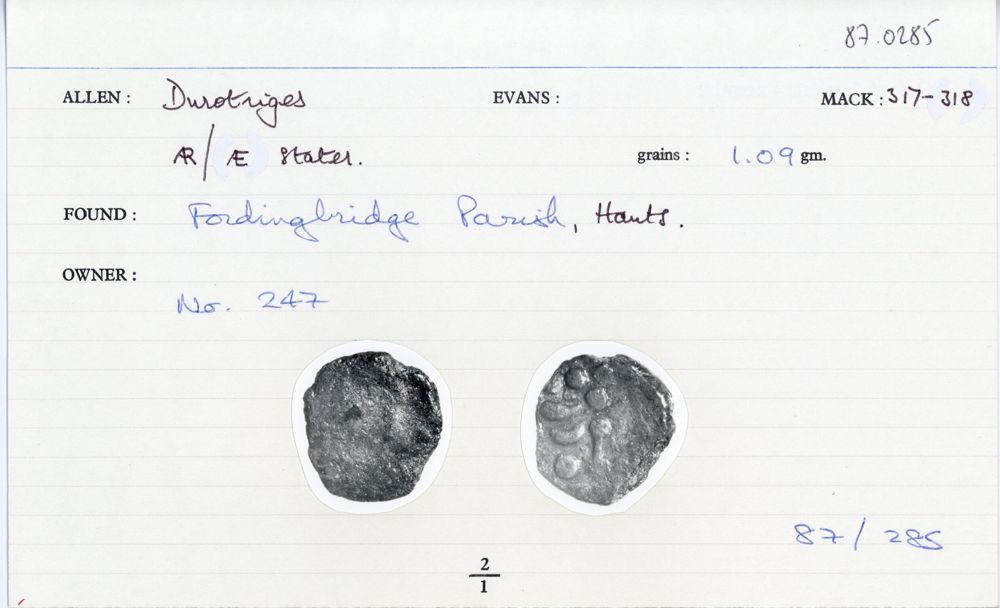 87.0285
ALLEN : Durotriges EVANS : MACK : 317-318
AR/Æ Stater. grains : 1.09 gm.
FOUND : Fordingbridge Parish, Hants.
OWNER :
No. 247
87/285
2
1